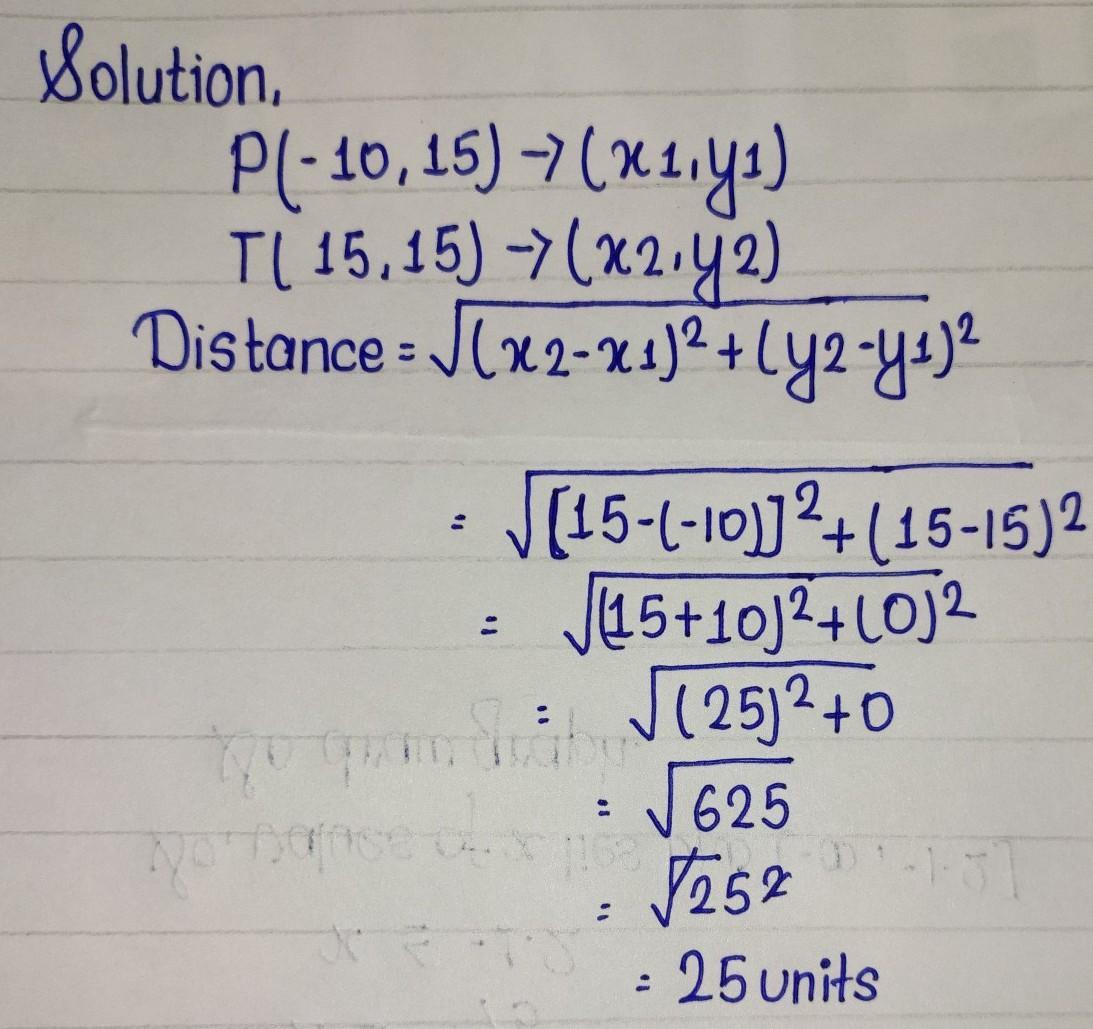 Solution,
P(-10,15)→(x1,y1)
T(15,15)→(x2,y2)
Distance=√(x2-x1)²+(y2-y1)²
=√[15-(-10)]²+(15-15)²
=√(15+10)²+(0)²
=√(25)²+0
=√625
=√25²
=25units